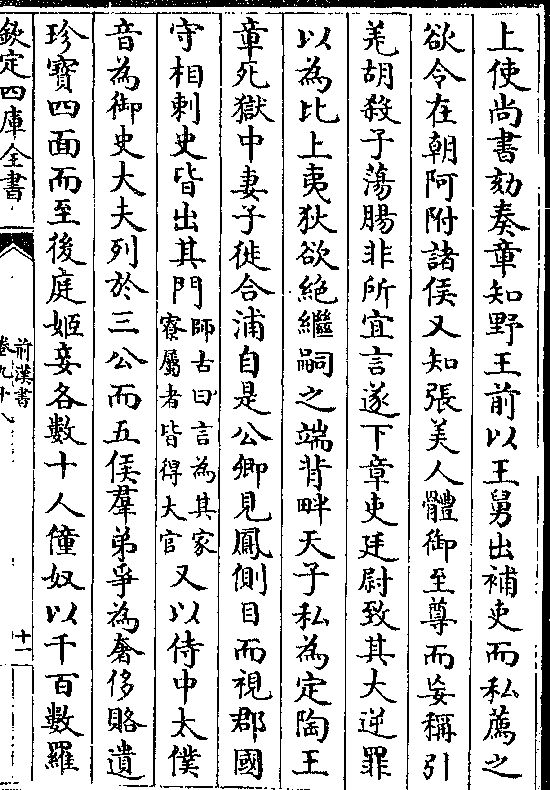 上使尚書劾奏章知野王前以王舅出補吏而私薦之
欲令在朝阿附諸侯又知張美人體御至尊而妄稱引
羌胡殺子蕩腸非所宜言遂下章吏廷尉致其大逆罪
以為比上夷狄欲絶繼嗣之端背畔天子私為定陶王
章死獄中妻子徙合浦自是公卿見鳳側目而視郡國
守相刺史皆出其門師古曰言為其家寮屬者皆得大官又以侍中太僕
音為御史大夫列於三公而五侯羣弟爭為奢侈賂遺
珍寶四面而至後庭姬妾各數十人僮奴以千百數羅
欽定四庫全書
前漢書
卷九十八
十一